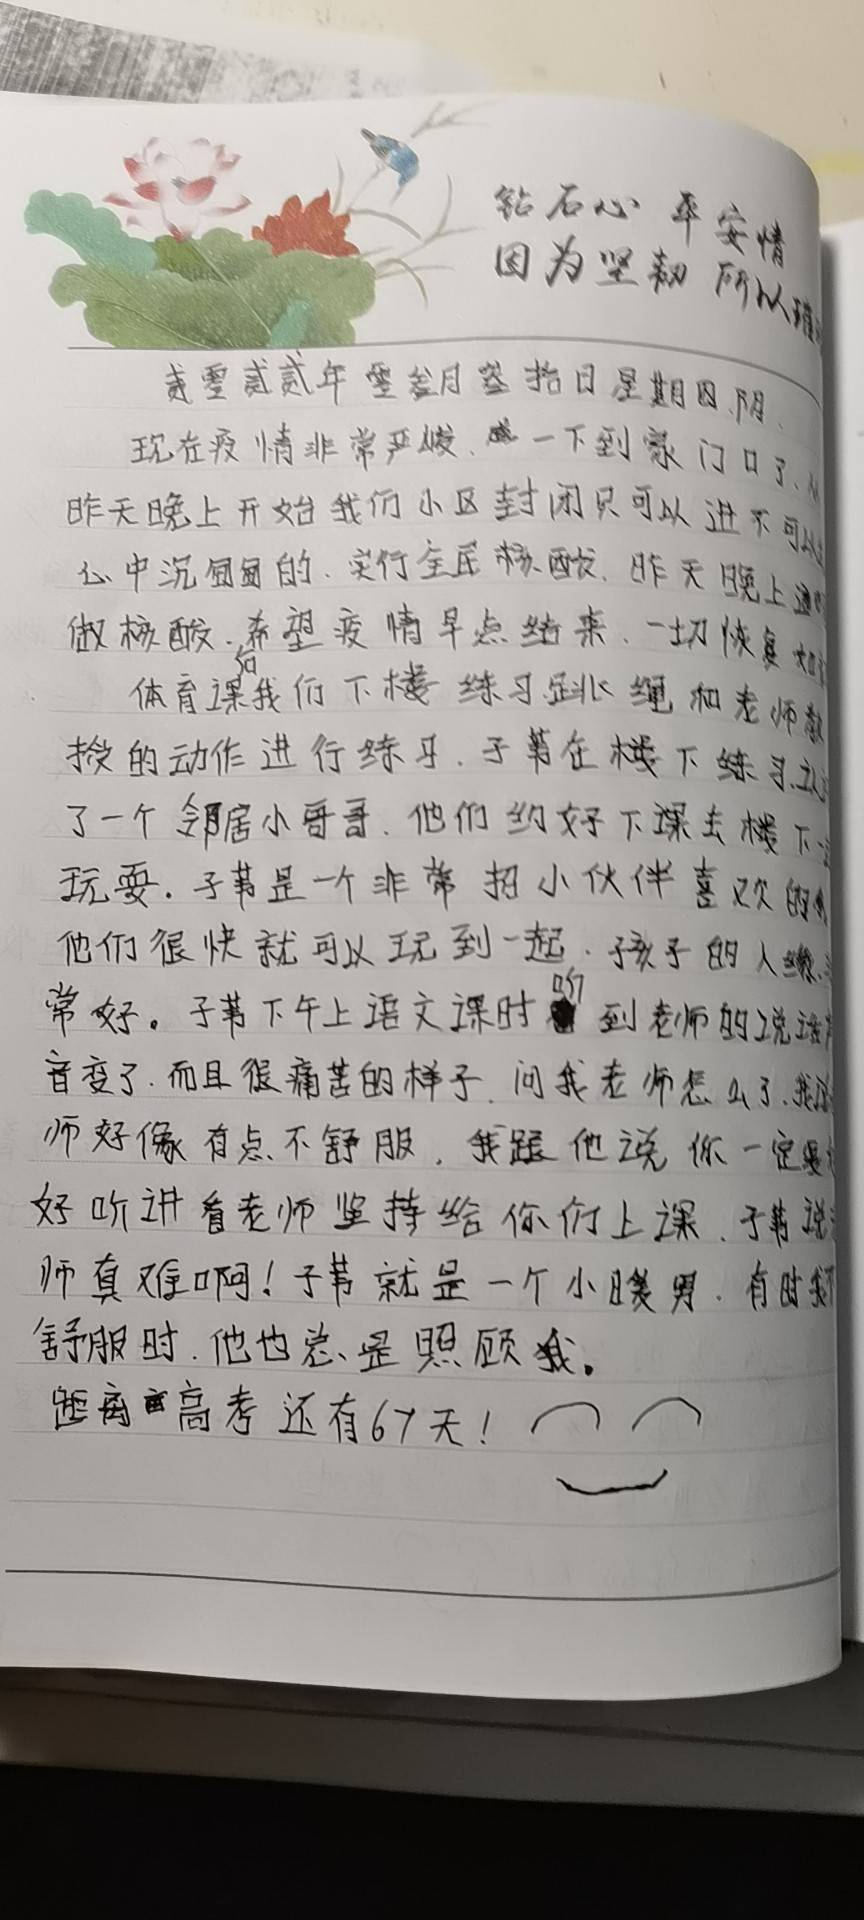 钻石心 平安情
因为坚韧 所以璀
贰零贰贰年零叁月叁拾日星期四.阴.
现在疫情非常严峻.一下到家门口了.从
昨天晚上开始我们小区封闭只可以进不可以
心中沉甸甸的.实行全民核酸.昨天晚上通
做核酸.希望疫情早点结束.一切恢复如
体育课我们下楼练习跳绳和老师教
授的动作进行练习.子苇在楼下练习.认
了一个邻居小哥哥.他们约好下课去楼下一
玩耍.子苇是一个非常招小伙伴喜欢的
他们很快就可以玩到一起.孩子的人缘.
常好。子苇下午上语文课时听到老师的说话
音变了.而且很痛苦的样子.问我老师怎么了.我说
师好像有点不舒服.我跟他说你一定要
好听讲看老师坚持给你们上课.子苇说
师真难啊!子苇就是一个小暖男.有时我不
舒服时.他也总是照顾我。
距离高考还有67天!